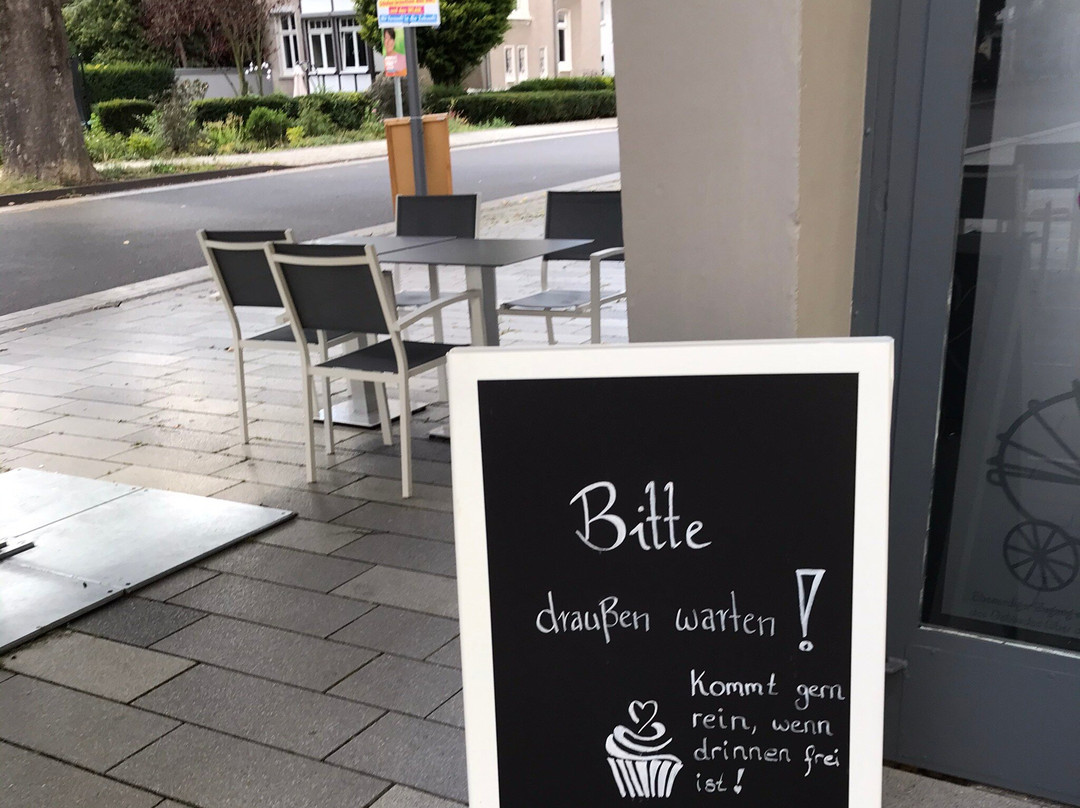 Bitte
draußen warten!
Kommt gern
rein, wenn
drinnen frei
ist!